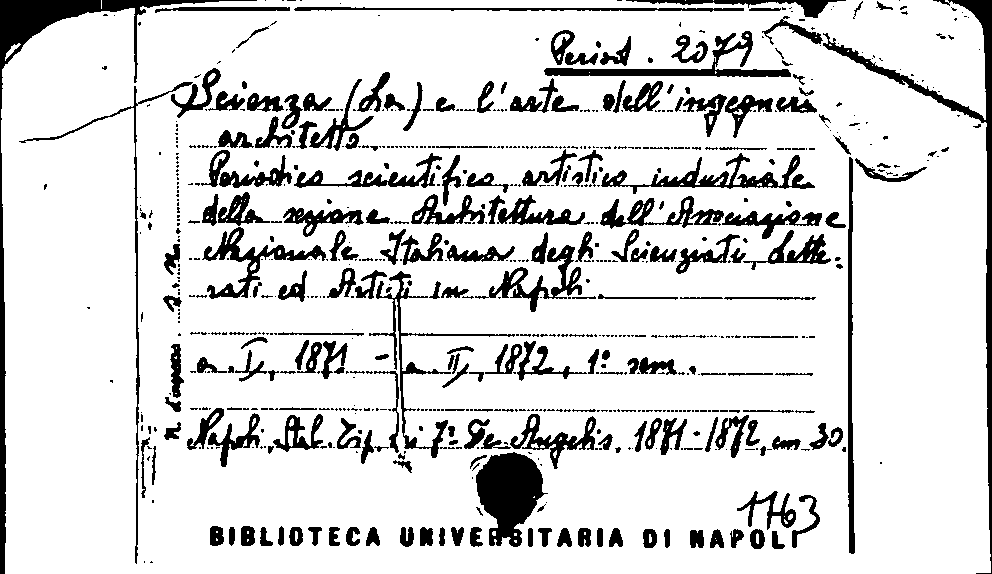 Period. 2079
Scienza (La) e l'arte dell'ingegnere
architetto.
Periodico scientifico, artistico, industriale
della sezione Architettura dell'Associazione
Nazionale Italiana degli Scienziati, Lette-
rati ed Artisti in Napoli.
a. I, 1871 - a. II, 1872, 1º sem.
Napoli, Stab. Tip. di De Angelis, 1871-1872, cm 30.
N. d'ingresso s. n.
1763
BIBLIOTECA UNIVERSITARIA DI NAPOLI